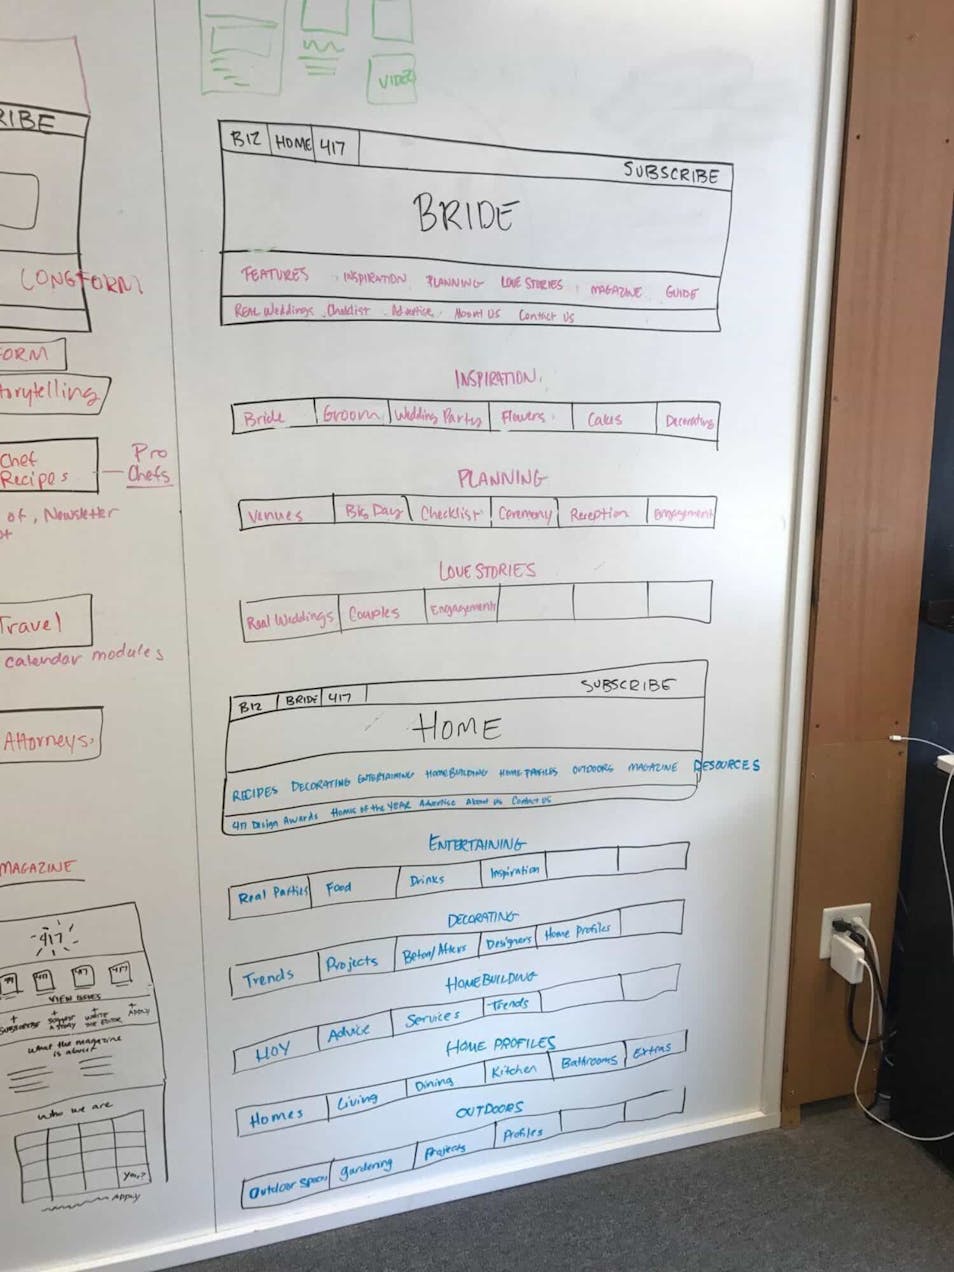 VIDEO
RIBE
LONGFORM
FORM
torytelling
Chef
Recipes
Pro
Chefs
of, Newsletter
ot
Travel
calendar modules
Attorneys.
MAGAZINE
417
VIEW ISSUES
+ + + +
SUBSCRIBE SUGGEST A STORY WRITE THE EDITOR APPLY
What the magazine
is about
Who we are
You?
APPLY
BIZ HOME 417
SUBSCRIBE
BRIDE
FEATURES INSPIRATION PLANNING LOVE STORIES MAGAZINE GUIDE
Real Weddings Checklist Advertise About Us Contact Us
INSPIRATION
Bride Groom Wedding Party Flowers Cakes Decorating
PLANNING
Venues Big Day Checklist Ceremony Reception Engagement
LOVE STORIES
Real Weddings Couples Engagements
BIZ BRIDE 417
SUBSCRIBE
HOME
RECIPES DECORATING ENTERTAINING HOMEBUILDING HOME PROFILES OUTDOORS MAGAZINE RESOURCES
417 Design Awards Homes of the YEAR Advertise About Us Contact Us
ENTERTAINING
Real Parties Food Drinks Inspiration
DECORATING
Trends Projects Before/Afters Designers Home Profiles
HOMEBUILDING
HOY Advice Services Trends
HOME PROFILES
Homes Living Dining Kitchen Bathrooms Extras
OUTDOORS
Outdoor Spaces Gardening Projects Profiles